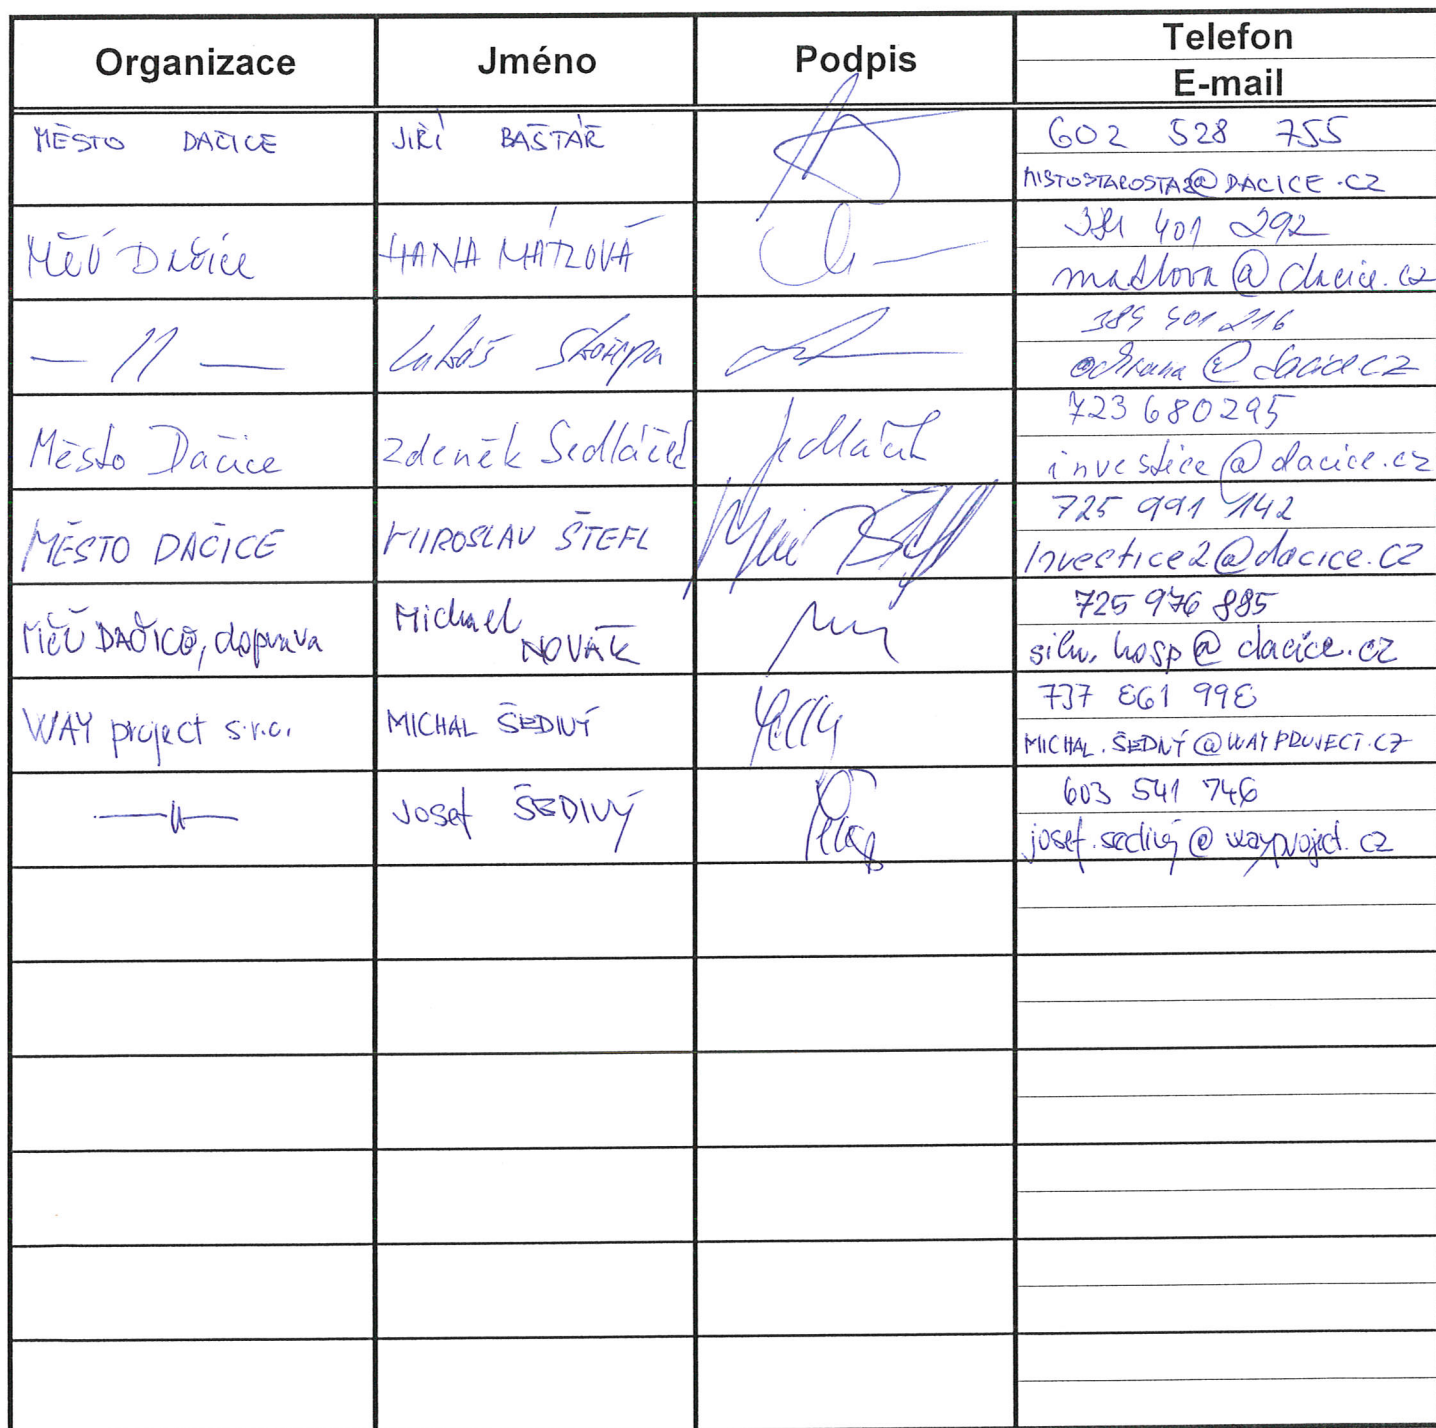 Organizace Jméno Podpis Telefon
E-mail
MĚSTO DAČICE JIŘÍ BAŠTÁŘ 602 528 755
MISTOSTAROSTA2@DACICE.CZ
MěÚ Dačice HANA MÁTLOVÁ 384 401 292
matlova@dacice.cz
— 11 — Lukáš 384 401 216
ochrana@dacice.cz
Město Dačice Zdeněk Sedláček Sedláček 723 680295
investice@dacice.cz
MĚSTO DAČICE MIROSLAV ŠTEFL 725 991 142
Investice2@dacice.cz
MěÚ DAČICE, doprava Michael NOVÁK 725 976 885
siln.hosp@dacice.cz
WAY project s.r.o. MICHAL ŠEDIVÝ 737 861 998
MICHAL.ŠEDIVÝ@WAYPROJECT.CZ
—11— Josef ŠEDIVÝ 603 541 746
josef.sedivy@wayproject.cz